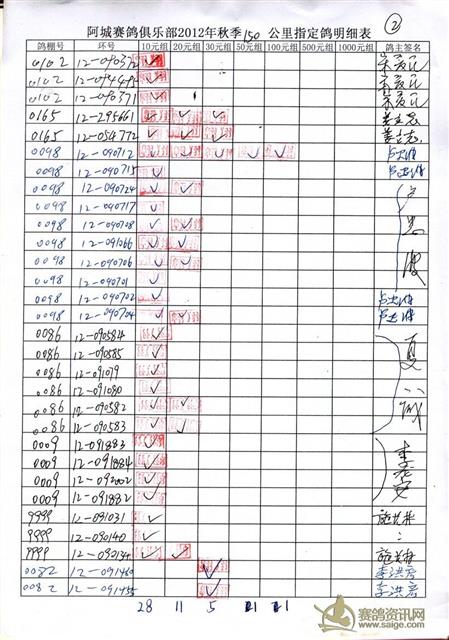 阿城赛鸽俱乐部2012年秋季150公里指定鸽明细表 ②
鸽棚号 环号 10元组 20元组 30元组 50元组 100元组 500元组 1000元组 鸽主签名
0102 12-090372
0102
0102 12-090371
0165 12-295661
0165 12-054772
0098 12-090712
0098 12-090715
0098 12-090724
0098 12-090717
0098 12-090708
0098 12-091066
0098 12-090706
0098 12-090701
0098 12-090702
0098 12-090704
0086 12-090584
0086 12-090585
0086 12-091079
0086 12-091080
0086 12-090582
0086 12-090583
0009 12-091883
0009 12-091884
0009 12-092002
0009 12-091882
9999 12-091031
9999 12-090140
9999 12-090134
0082 12-091460 李洪彦
0082 12-091455 李洪彦
28 11 5 1 1
赛鸽资讯网
www.saige.com